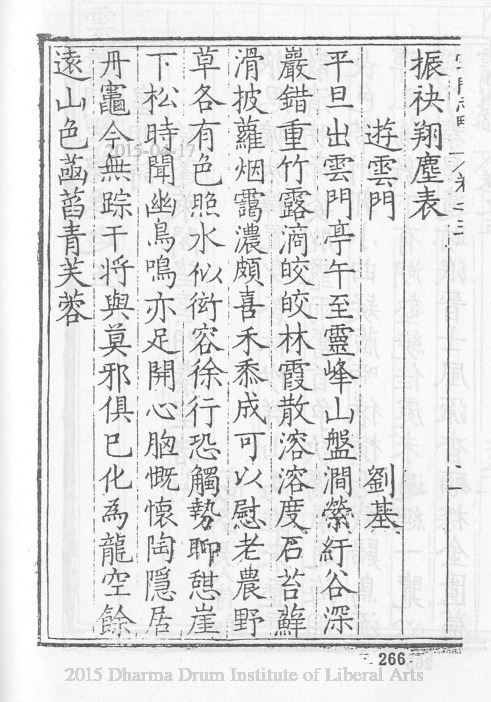 振袂翔塵表
遊雲門
劉基
平旦出雲門亭午至靈峰山盤澗縈紆谷深
巖錯重竹露滴皎皎林霞散溶溶度石苔蘚
滑披蘿烟靄濃頗喜禾黍成可以慰老農野
草各有色照水似衒容徐行恐觸勢聊憇崖
下松時聞幽鳥鳴亦足開心胷慨懷陶隱居
丹竈今無踪干将與莫邪俱已化為龍空餘
遠山色菡萏青芙蓉
266
2015-04-17
2015 Dharma Drum Institute of Liberal Arts